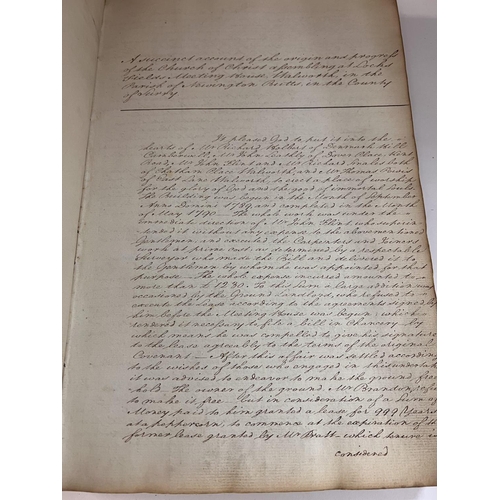 A succinct account of the origin and progress
of the Church of Christ assembling at Locks
Fields Meeting House, Walworth, in the
Parish of Newington Butts, in the County
of Surry
It pleased God to put it into the
hearts of Mr Richard Walkers of Denmark Hill
Mr John of Place, Kent
Road, Mr John Flint and Mr Richard both
of Chatham Place Walworth, and Mr Thomas
of Lane Walworth to erect a place of worship
for the glory of God and the good of immortal Souls.
The Building was begun in the Month of September
Anno Domini 1789 and compleated in the Month
of May 1790 – The whole work was under the
immediate direction of Mr John Flint who superin-
tended it without any expense to the abovementioned
Gentlemen, and executed the Carpenters and Joiners
work at prime cost, as determined by a respectable
Surveyor who made the Bill and delivered it to
the Gentlemen by whom he was appointed for that
purpose – The whole expense incurred amounted to
more than £1230. To this sum a large addition was
occasioned by the Ground Landlord, who refused to
execute the lease according to the agreements signed by
him before the Meeting House was begun; which
rendered it necessary to file a bill in Chancery by
which means he was compelled to give his signature
to the lease agreeably to the terms of the original
Covenant – After this affair was settled according
to the wishes of those who engaged in this undertak
it was advised to endeavor to make the ground free
hold. The owner of the ground Mr Brandon
to make it free – but in consideration of a sum of
Money paid to him granted a lease for 999 Years
at a peppercorn, to commence at the expiration of the
former lease granted by Mr Pratt – which tenure is
considered